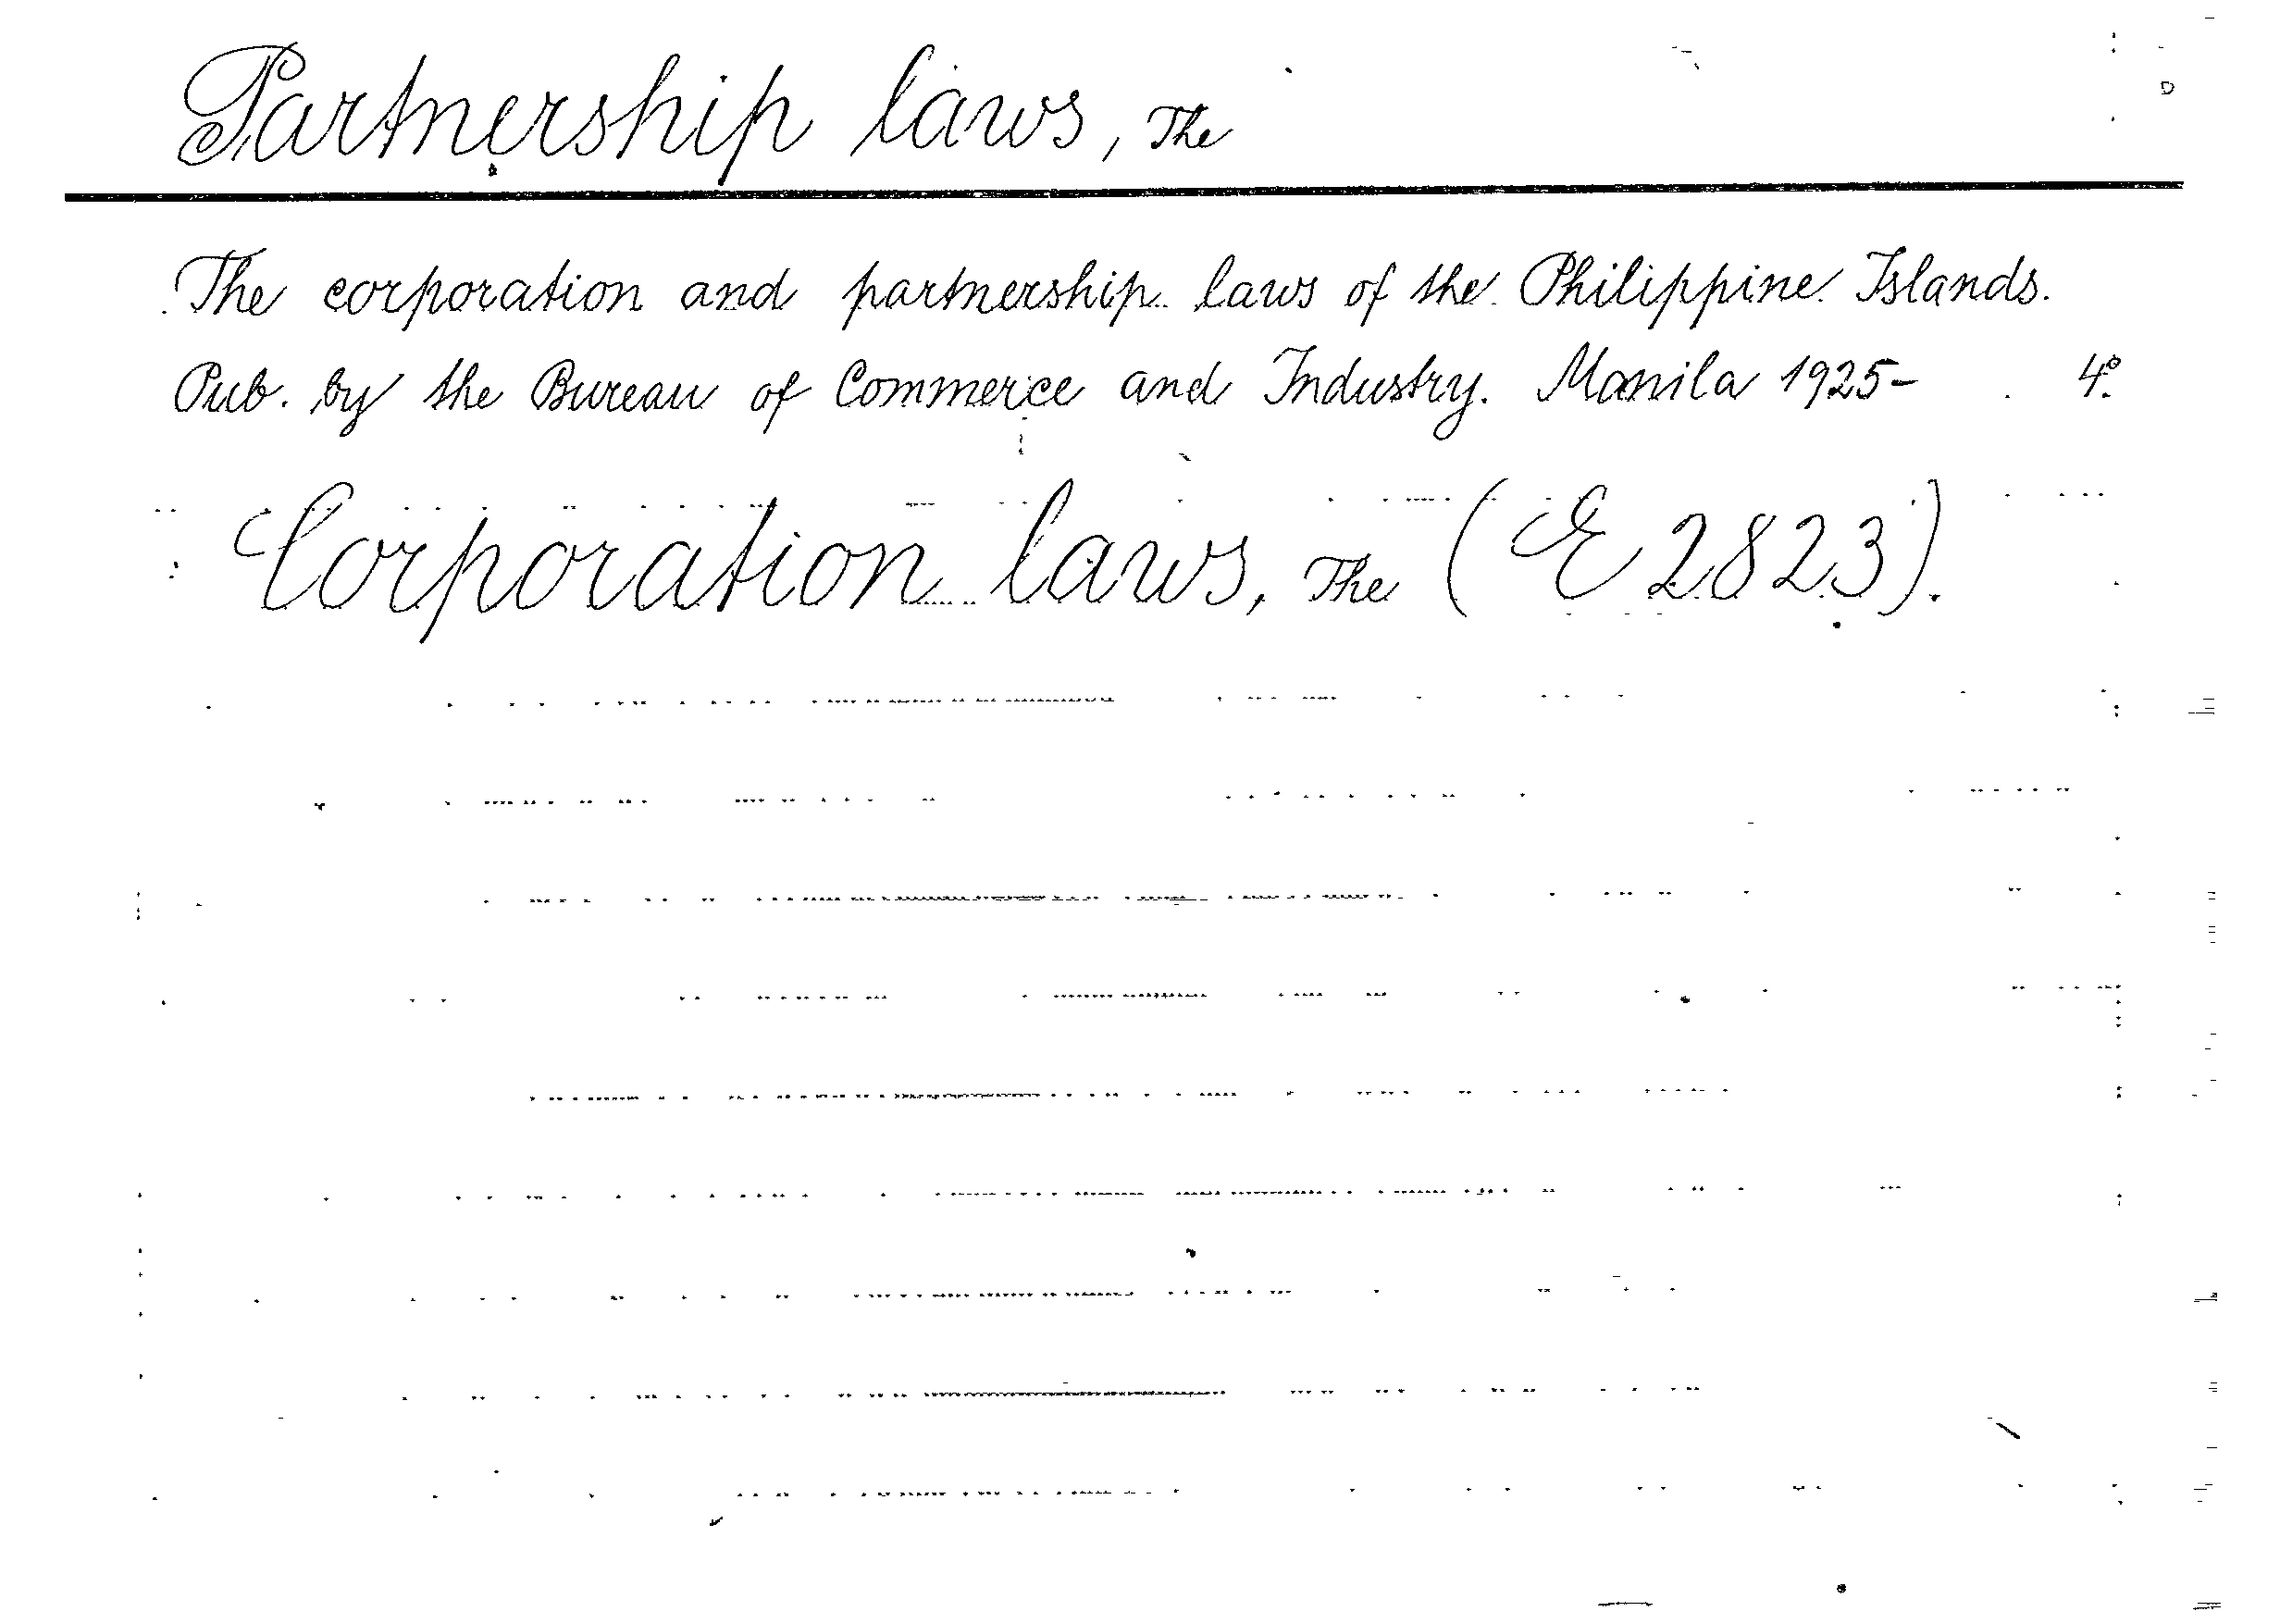 Partnership laws, The
The corporation and partnership laws of the Philippine Islands.
Pub. by the Bureau of Commerce and Industry. Manila 1925- 4°.
Corporation laws, The (E 2823).